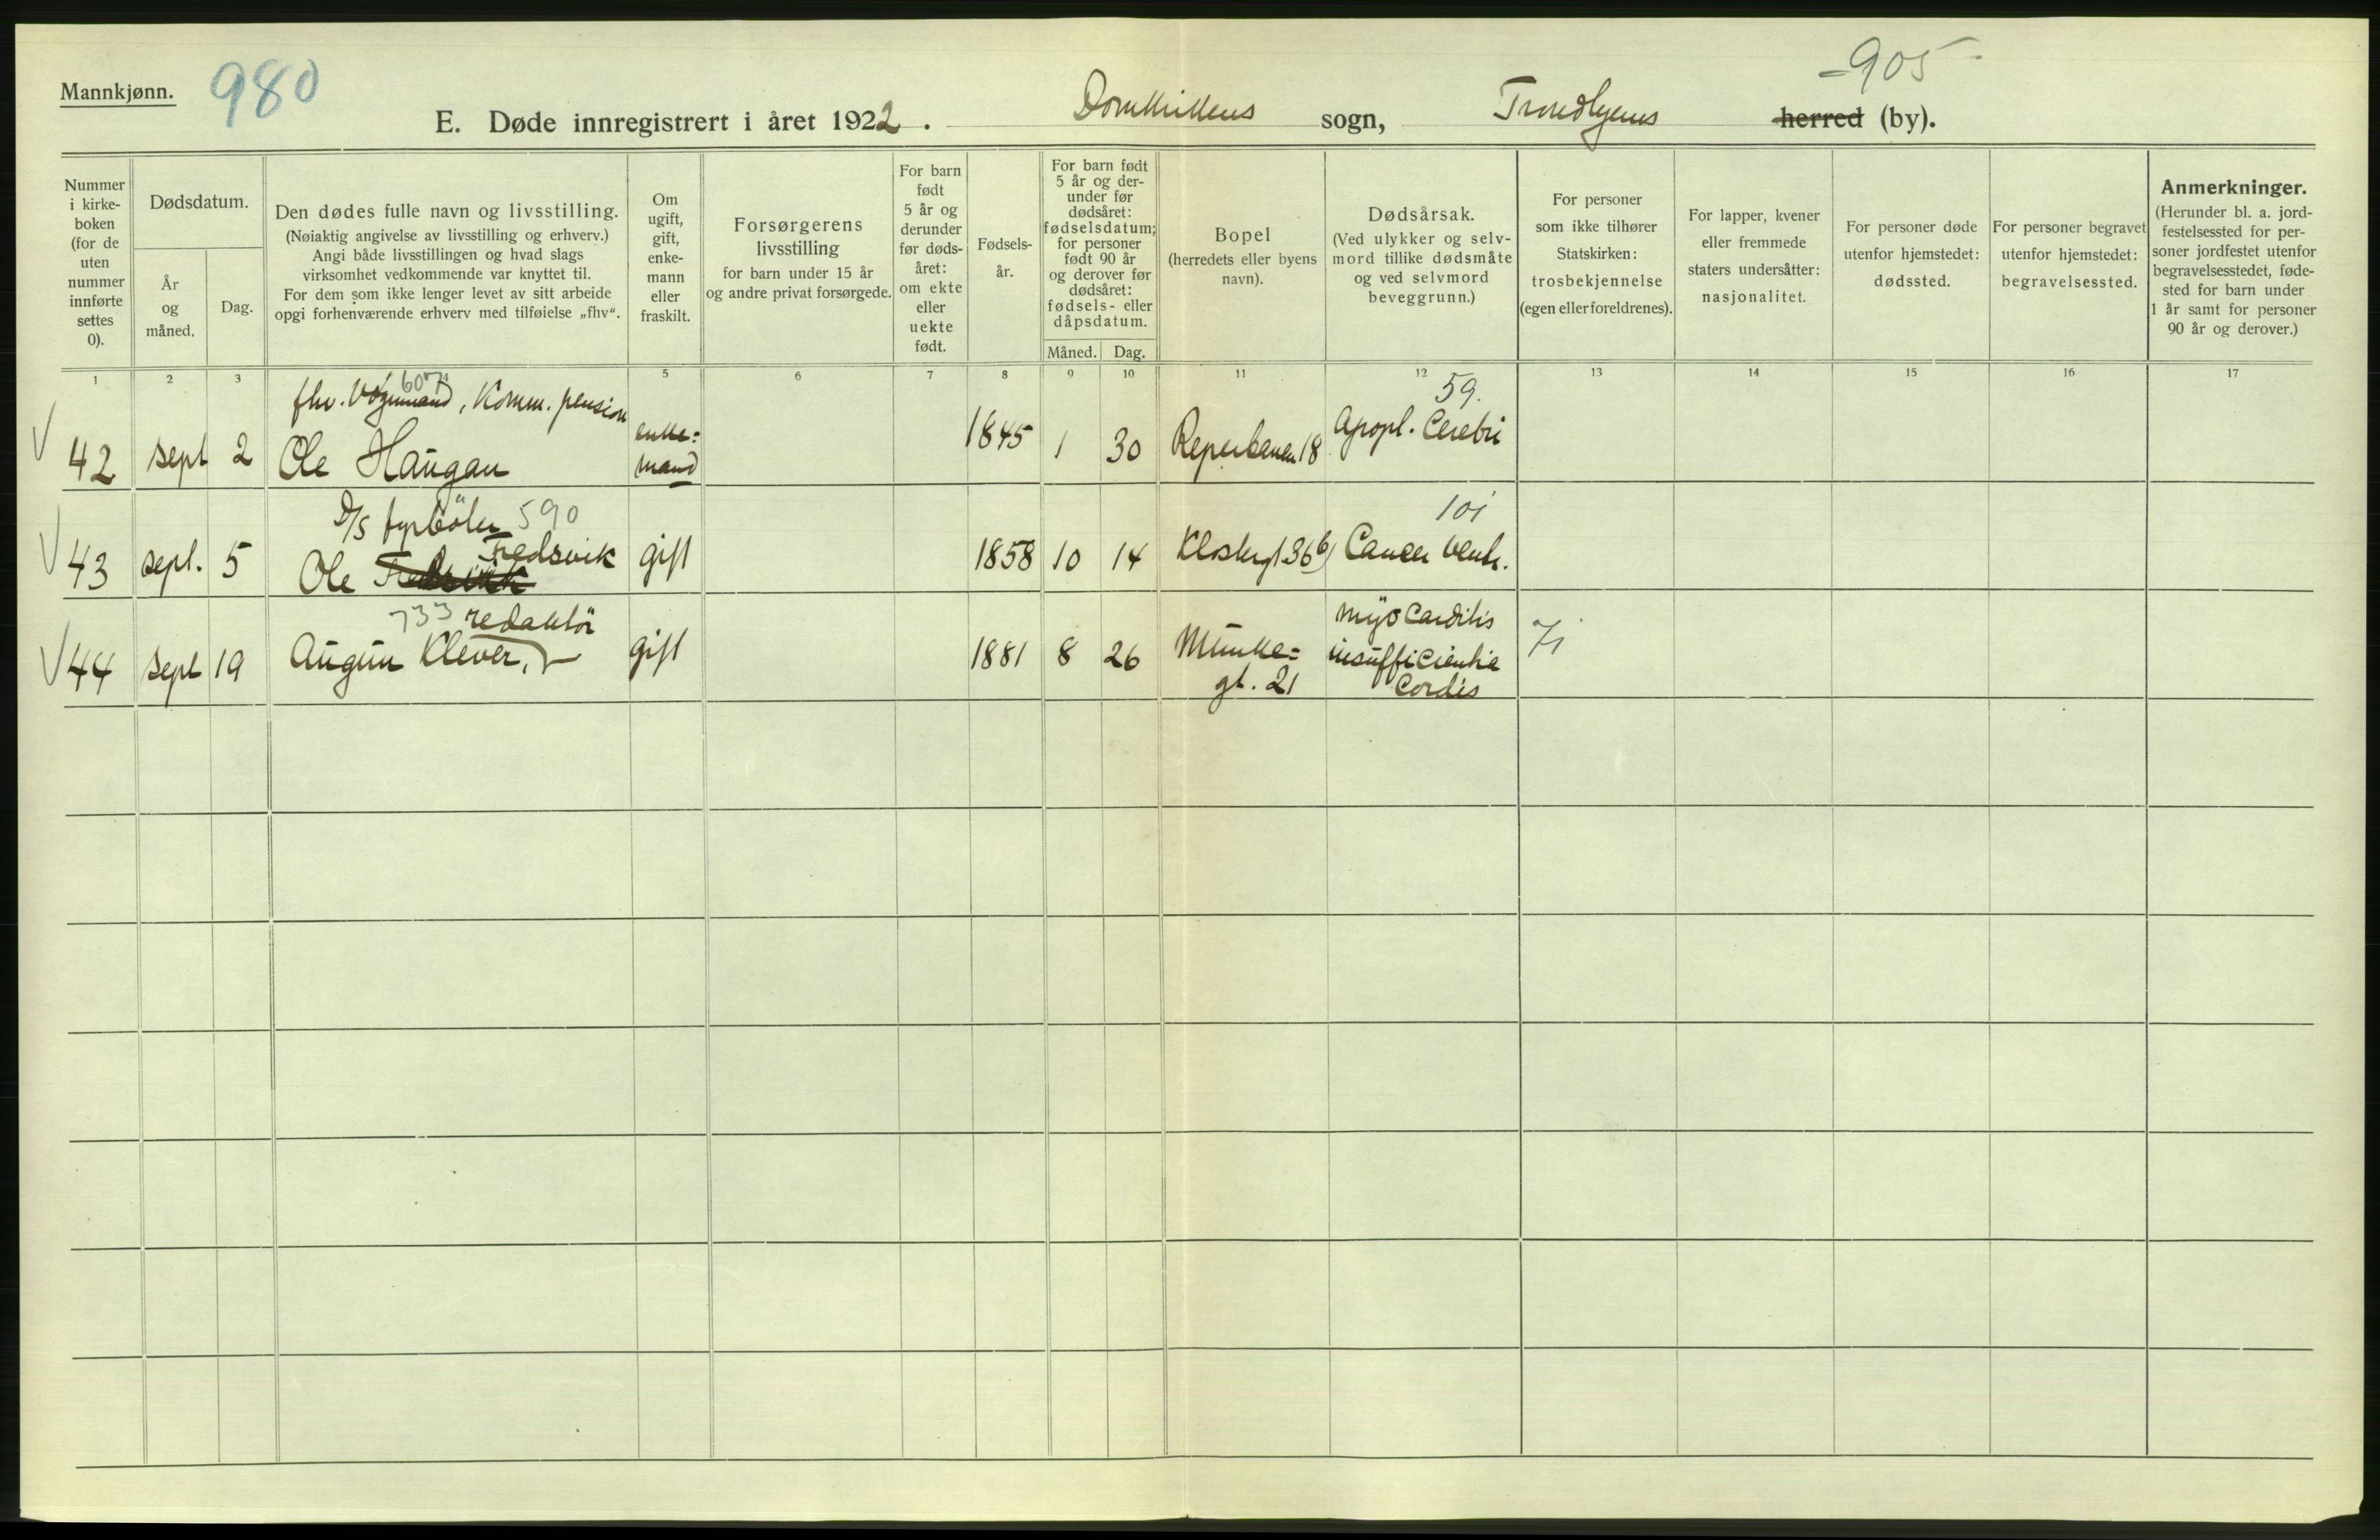 Mannkjønn.
980
=905-
E. Døde innregistrert i året 1922. Domkirkens sogn, Trondhjems herred (by).
Nummer
i kirke-
boken
(for de
uten
nummer
innførte
settes
0).
Dødsdatum.
År
og
måned.
Dag.
Den dødes fulle navn og livsstilling.
(Nøiaktig angivelse av livsstilling og erhverv.)
Angi både livsstillingen og hvad slags
virksomhet vedkommende var knyttet til.
For dem som ikke lenger levet av sitt arbeide
opgi forhenværende erhverv med tilføielse „fhv“.
Om
ugift,
gift,
enke-
mann
eller
fraskilt.
Forsørgerens
livsstilling
for barn under 15 år
og andre privat forsørgede.
For barn
født
5 år og
derunder
før døds-
året:
om ekte
eller
uekte
født.
Fødsels-
år.
For barn født
5 år og der-
under før
dødsåret:
fødselsdatum;
for personer
født 90 år
og derover før
dødsåret:
fødsels- eller
dåpsdatum.
Måned. Dag.
Bopel
(herredets eller byens
navn).
Dødsårsak.
(Ved ulykker og selv-
mord tillike dødsmåte
og ved selvmord
beveggrunn.)
For personer
som ikke tilhører
Statskirken:
trosbekjennelse
(egen eller foreldrenes).
For lapper, kvener
eller fremmede
staters undersåtter:
nasjonalitet.
For personer døde
utenfor hjemstedet:
dødssted.
For personer begravet
utenfor hjemstedet:
begravelsessted.
Anmerkninger.
(Herunder bl. a. jord-
festelsessted for per-
soner jordfestet utenfor
begravelsesstedet, føde-
sted for barn under
1 år samt for personer
90 år og derover.)
1 2 3 5 6 7 8 9 10 11 12 13 14 15 16 17
607
fhv. Vognmand, Komm. pension
59.
42 sept 2 Ole Haugan enke=
mand
1845 1 30 Reperbanen 18 Apopl. Cerebri
D/S fyrböter 590
101
43 sept. 5 Ole Fredsvik gift 1858 10 14 Klostergt. 36b Cancer Ventr.
733 redaktör
44 sept 19 Augun Klever, gift 1881 8 26 Munke=
gt. 21
Myocarditis
insufficientia
Cordis
71